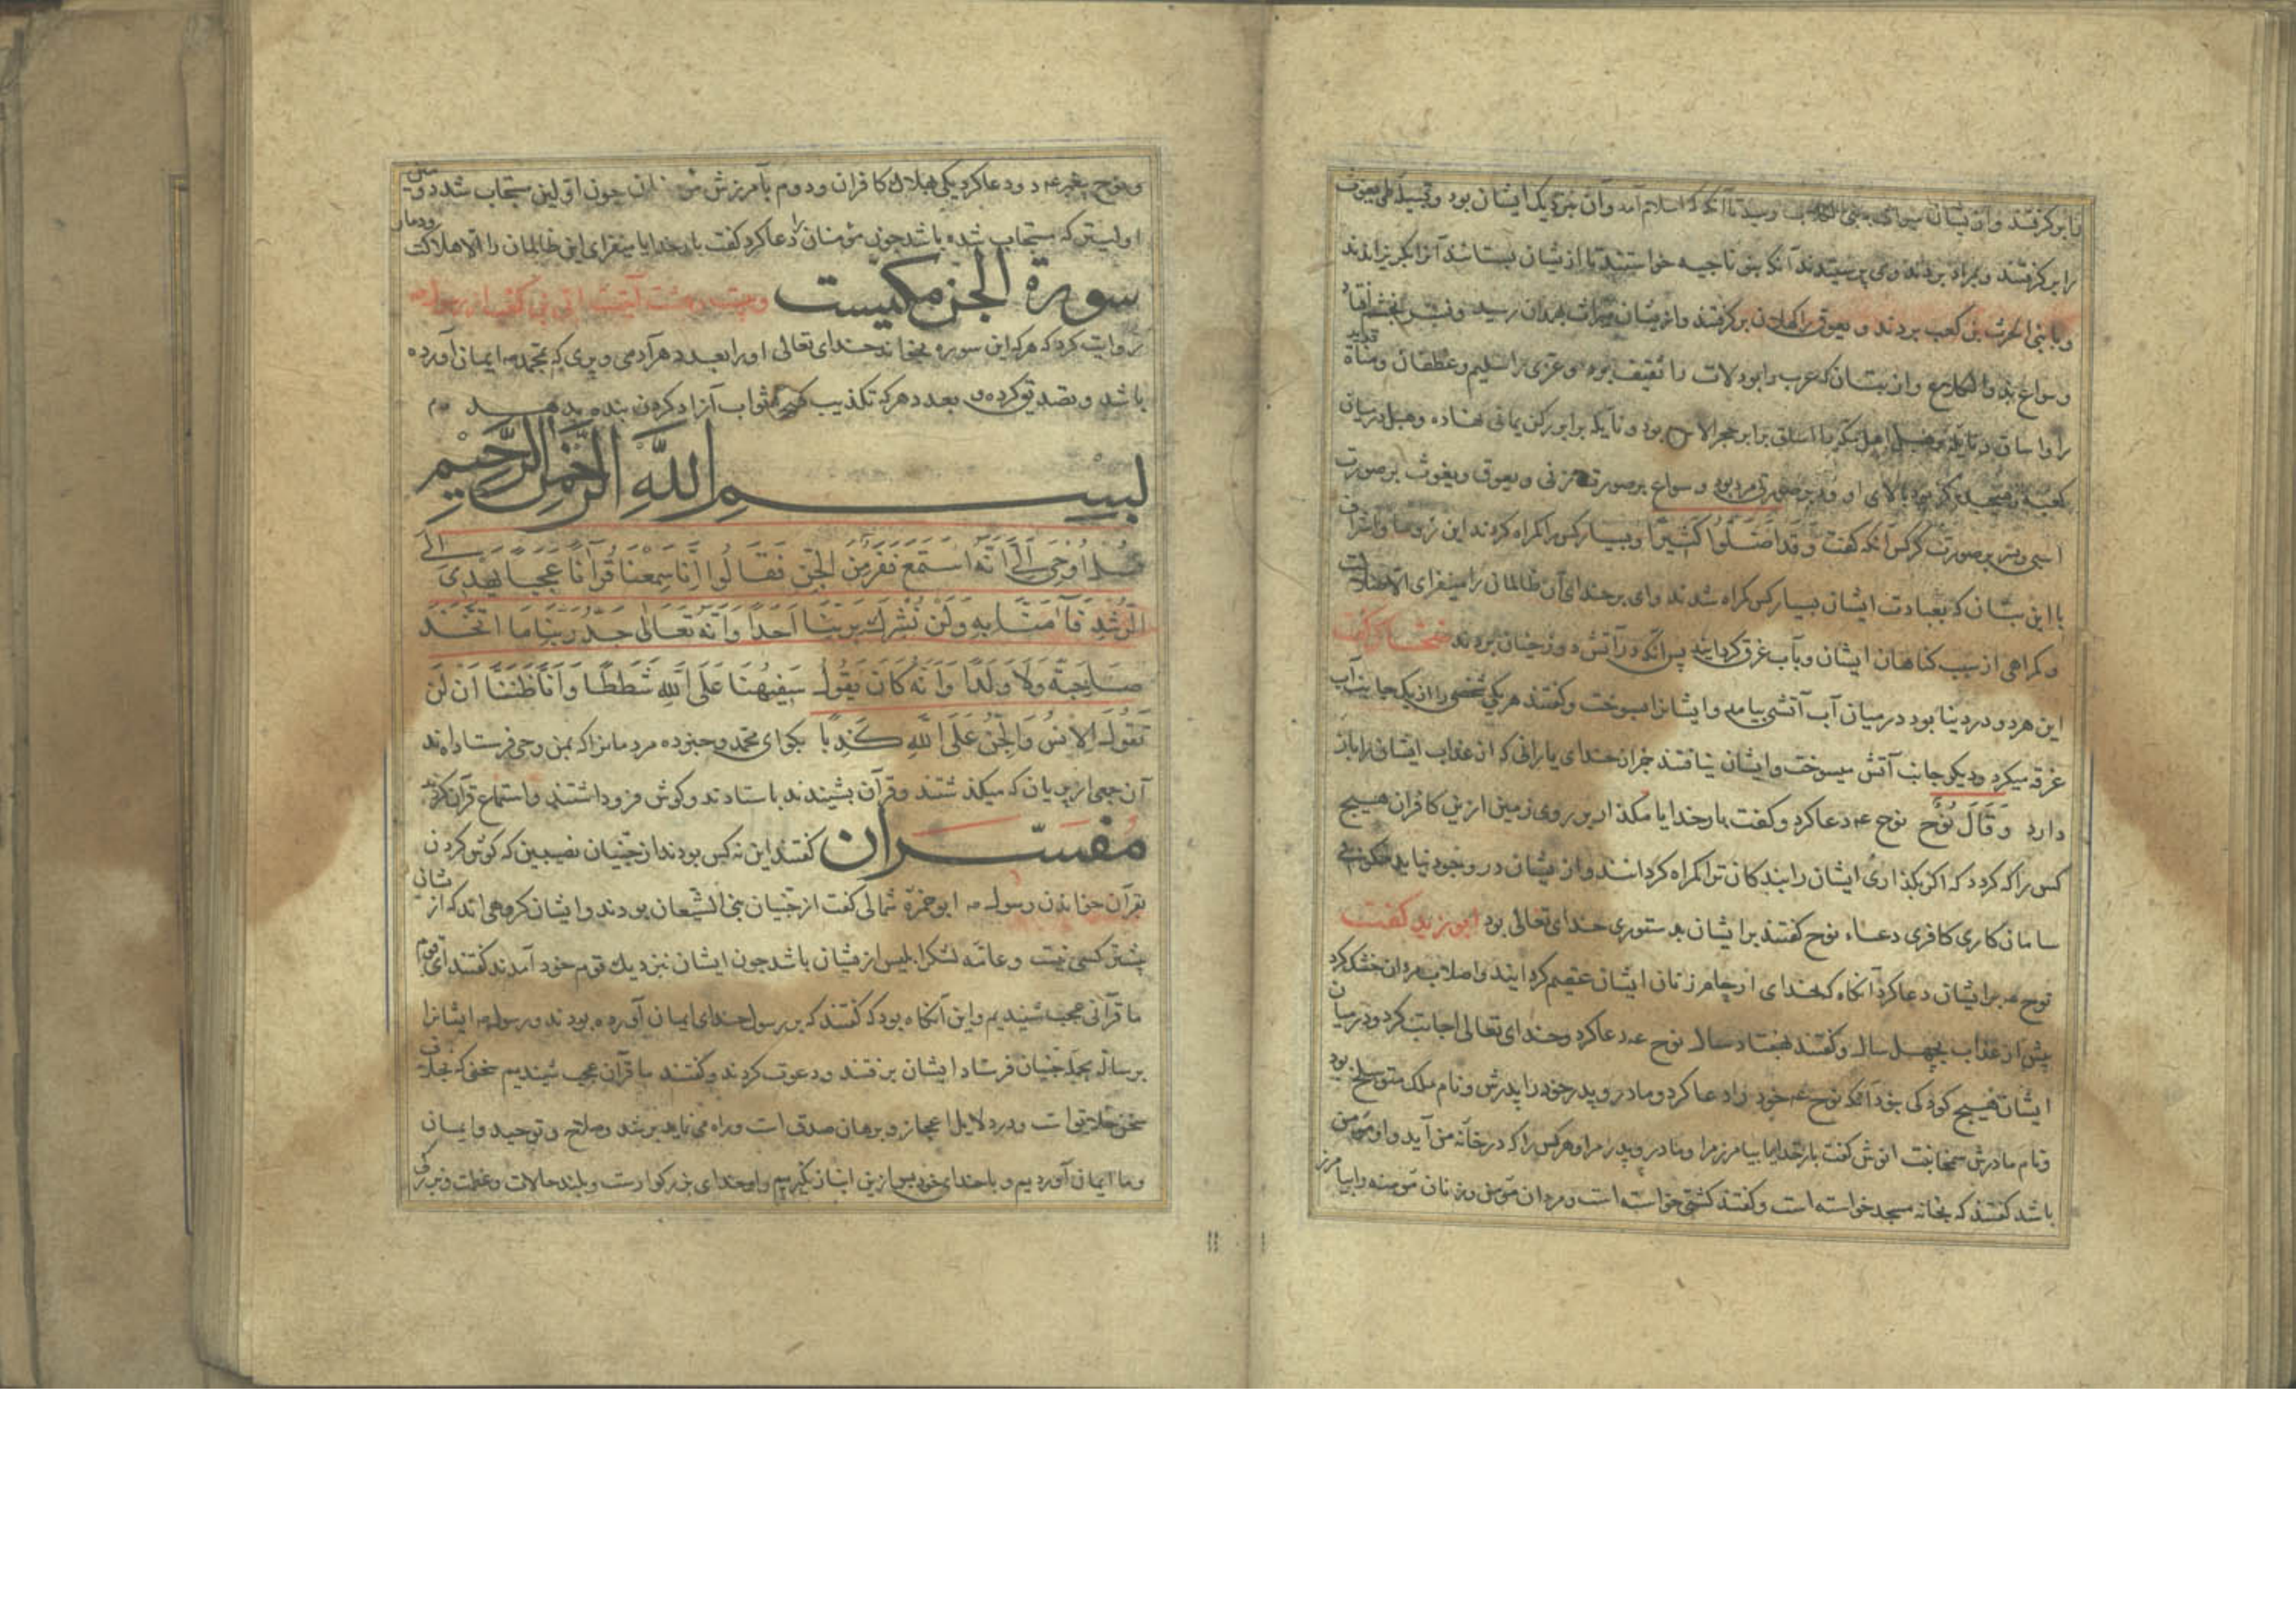 را برگرفتند و بمراد بردند و می پرستیدند آنگه بنو ناجیه خواستند تا از یشان بستانند آنرا بگریزانیدند
و با بنی الحرث بن کعب بردند و یعوق را کهلان برگرفتند و از یشان بمیراث بهمدان رسید و نسر
و از بتان که عرب را بود لات را ثقیف بود و عزی را سلیم و غطفان و مناة
را و اساف و نایله و هبل اهل مکه را اساف برابر حجر الاس بود و نایله برابر رکن یمانی نهاده و هبل درمیان
کعبه بود بالای او و ود بر صورت مرد بود و سواع بر صورت زنی و یعوق و یغوث بر صورت
اسبی و نسر بر صورت کرکس آنگه گفت وَقَدْ اَضَلُّوا كَثِيرًا و بسیار کس را گمراه کردند این رؤسا و اشراف
با این بتان که بعبادت ایشان بسیار کس گمراه شدند وای بر خدای آن ظالمان را میفزای الا ضلالت
و گمراهی از سبب گناهان ایشان و بآب غرق کردایند پس آنگه در آتش دوزخشان بردند ضحاک گفت
این هر دو در دنیا بود در میان آب آتشی بیامد و ایشانرا بسوخت و گفتند هر یکی شخصی را از یک جانب آب
غرقه میکرد و دیگر جانب آتش میسوخت و ایشان نیافتند جز از خدای یارانی که از عذاب ایشان را باز
دارد وَقَالَ نُوْحٌ نوح عه دعا کرد و گفت بار خدایا مگذار بر روی زمین ازین کافران هیچ
کس را که کردد که اگر بگذاری ایشان را بندگان ترا گمراه گردانند و از یشان در وجود نیاید
سامان کاری کافری دعاء نوح گفتند برایشان بدستوری خدای تعالی بود ابن زید گفت
نوح عه برایشان دعا کرد آنگاه که خدای ارحام زنان ایشان عقیم گردانید و اصلاب مردان خشک کرد
پیش از عذاب بچهل سال و گفتند هفتاد سال نوح عه دعا کرد و خدای تعالی اجابت کرد و درمیان
ایشان هیچ کودکی نبود آنگه نوح عه خود را دعا کرد و مادر و پدر خود را پدرش و نام ملک متوسلخ بود
و نام مادرش سمخا بنت انوش گفت بار خدایا بیامرز مرا و مادر و پدر مرا و هر کس را که در خانه من آید و او مومن
باشد گفتند که بخانه مسجد خواسته است و گفتند کشتی خواسته است و مردان مومن و زنان مومنه را بیامرز
و نوح پیغمبر عه دو دعا کرد یکی بهلاک کافران و دوم بآمرزش چون اولین مستجاب شد دومین
اولیتر که مستجاب شده باشد چون مؤمنان را دعا کرد گفت بار خدایا میفزای این ظالمان را الا هلاکت و دمار
سورة الجن مکیست و بیست و هشت آیتست ابی بن کعب از رسول صه
روایت کرد که هر که این سوره بخواند خدای تعالی او را بعدد هر آدمی و پری که بمحمد صه ایمان آورده
باشد و تصدیق کرده و بعدد هر که تکذیب کرد ثواب آزاد کردن بنده بدهد
بسم اللّٰه الرحمن الرحیم
قُلْ اُوْحِيَ اِلَيَّ اَنَّهُ اسْتَمَعَ نَفَرٌ مِنَ الْجِنِّ فَقَالُوا اِنَّا سَمِعْنَا قُرْآنًا عَجَبًا يَهْدِي اِلَى
الرُّشْدِ فَآمَنَّا بِهِ وَلَنْ نُشْرِكَ بِرَبِّنَا اَحَدًا وَاَنَّهُ تَعَالَى جَدُّ رَبِّنَا مَا اتَّخَذَ
صَاحِبَةً وَلَا وَلَدًا وَاَنَّهُ كَانَ يَقُولُ سَفِيهُنَا عَلَى اللَّهِ شَطَطًا وَاَنَّا ظَنَنَّا اَنْ لَنْ
تَقُولَ الْاِنْسُ وَالْجِنُّ عَلَى اللَّهِ كَذِبًا بگو ای محمد و خبر ده مردمانرا که بمن وحی فرستاده اند
آن جمعی از پریان که میگذشتند و قرآن بشنیدند باستادند و گوش فرو داشتند و استماع قرآن کردند
مفسّران گفتند این نه کس بودند از جنیان نصیبین که گوش کردن
بقرآن خواندن رسول صه ابو حمزه ثمالی گفت از جنیان بنی الشیصان بودند و ایشان گروهی اند که از شانی
بیشتر کسی نیست و عامّه لشکر ابلیس از یشان باشد چون ایشان بنزدیک قوم خود آمدند گفتند ای قوم
ما قرآنی عجب شنیدیم و این آنگاه بود که گفتند که بر رسول خدای ایمان آورده بودند و رسول صه ایشانرا
برسالة بجمله جنیان فرستاد ایشان برفتند و دعوت کردند و گفتند ما قرآن عجب شنیدیم سخنی که بخلاف
سخن خلایق است و درو دلایل اعجاز و برهان صدق است و راه می نماید برشد و صلاح و توحید و ایمان
و ما ایمان آوردیم و با خدای خود پس ازین انباز نگیریم و او خدای بزرگوارست و بلند حالات و عظمت